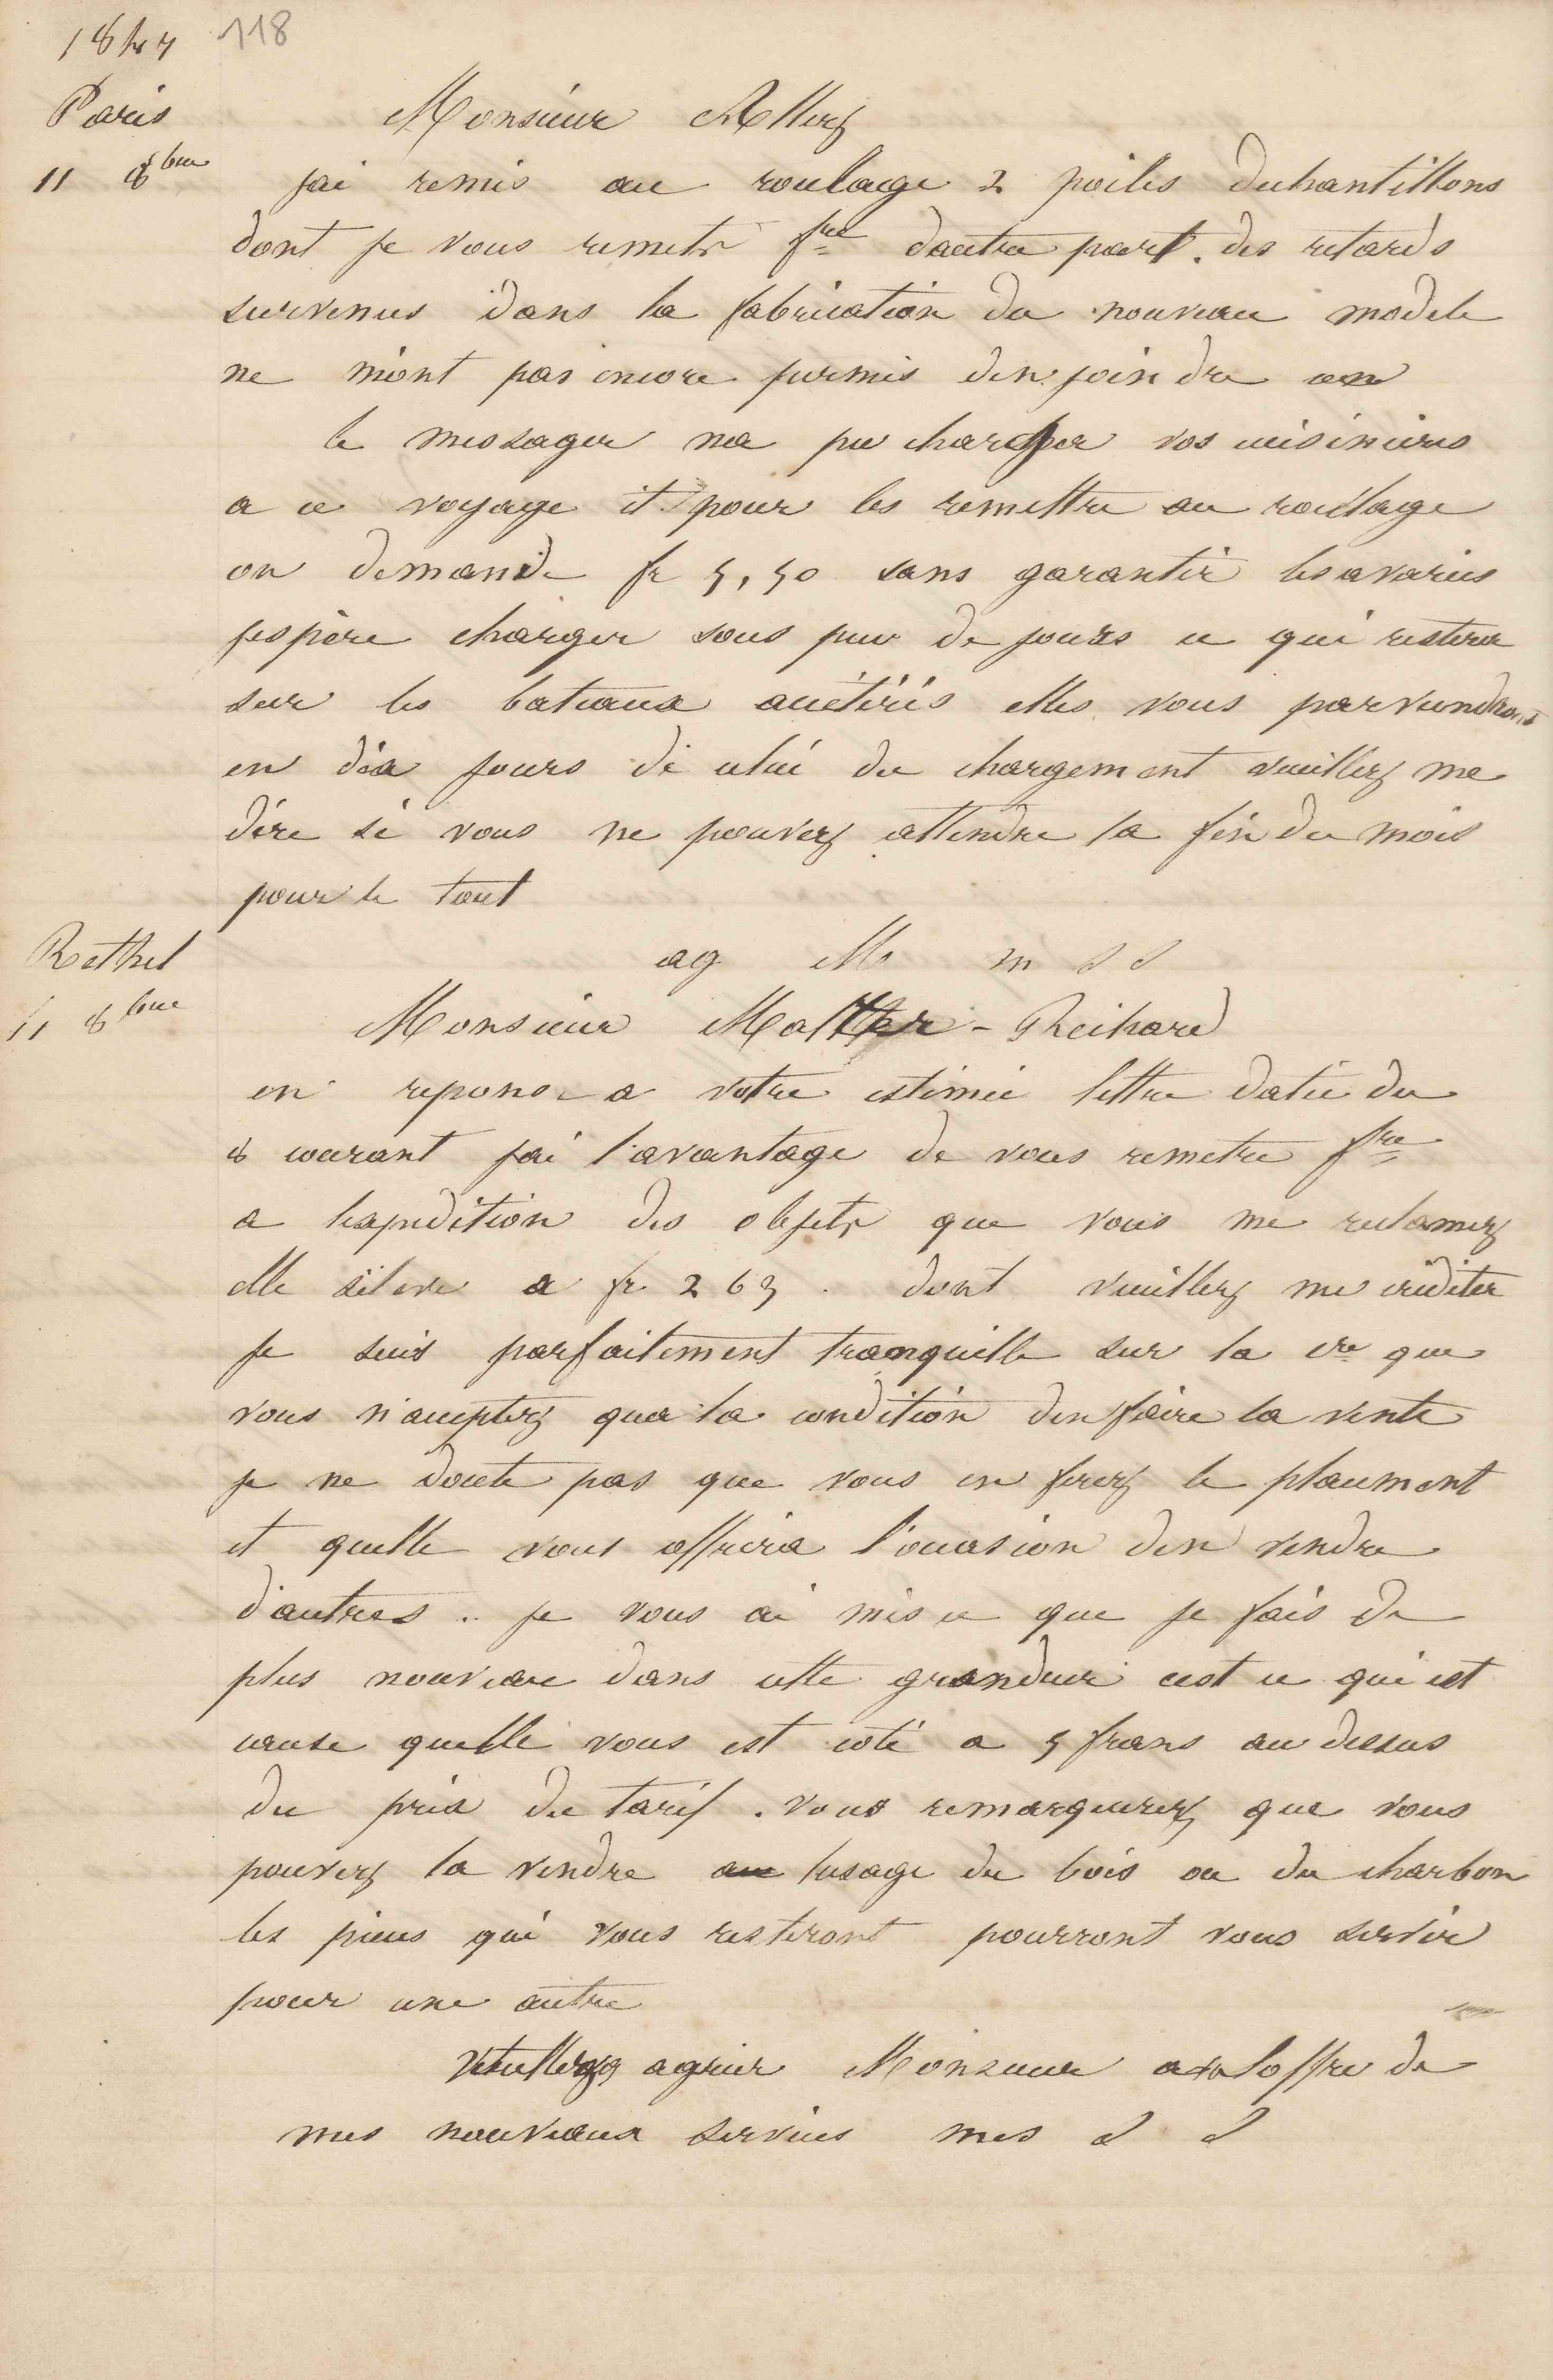 1847 118
Paris
Monsieur Allez
11 8bre
jai remis au roulage 2 poiles dechantillons
dont je vous remets fre dautre part. des retards
survenus dans la fabrication du nouveau modele
ne m'ont pas encore permis den joindre un
le messager na pu charger vos cuisinieres
a ce voyage et pour les remettre au roulage
on demande fr 5,50 sans garantir les avaries
jespère charger sous peu de jours ce qui restera
sur les bateaux accélérés elles vous parviendront
en dix jours de celui du chargement veuillez me
dire si vous ne pouvez attendre la fin du mois
pour le tout
ag M m s s
Rethel
11 8bre
Monsieur Malter - Reihard
en reponse a votre estimée lettre datée du
8 courant jai l'avantage de vous remetre fre
a lexpedition des objets que vous me reclamez
elle sèleve a fr 263. dont veuillez me créditer
je suis parfaitement tranquille sur la cre que
vous n'acceptez qua la condition den faire la vente
je ne doute pas que vous en ferez le placement
et quelle vous offrira l'occasion den vendre
d'autres .. je vous ai mis ce que je fais de
plus nouveau dans cette grandeur cest ce qui est
cause quelle vous est coté a 5 frans au dessus
du prix du tarif. vous remarquerez que vous
pouvez la vendre au lusage du bois ou du charbon
les pieces qui vous resteront pourront vous servir
pour une autre
Veuillez agréer Monsieur loffre de
mes nouveaux services mes s s